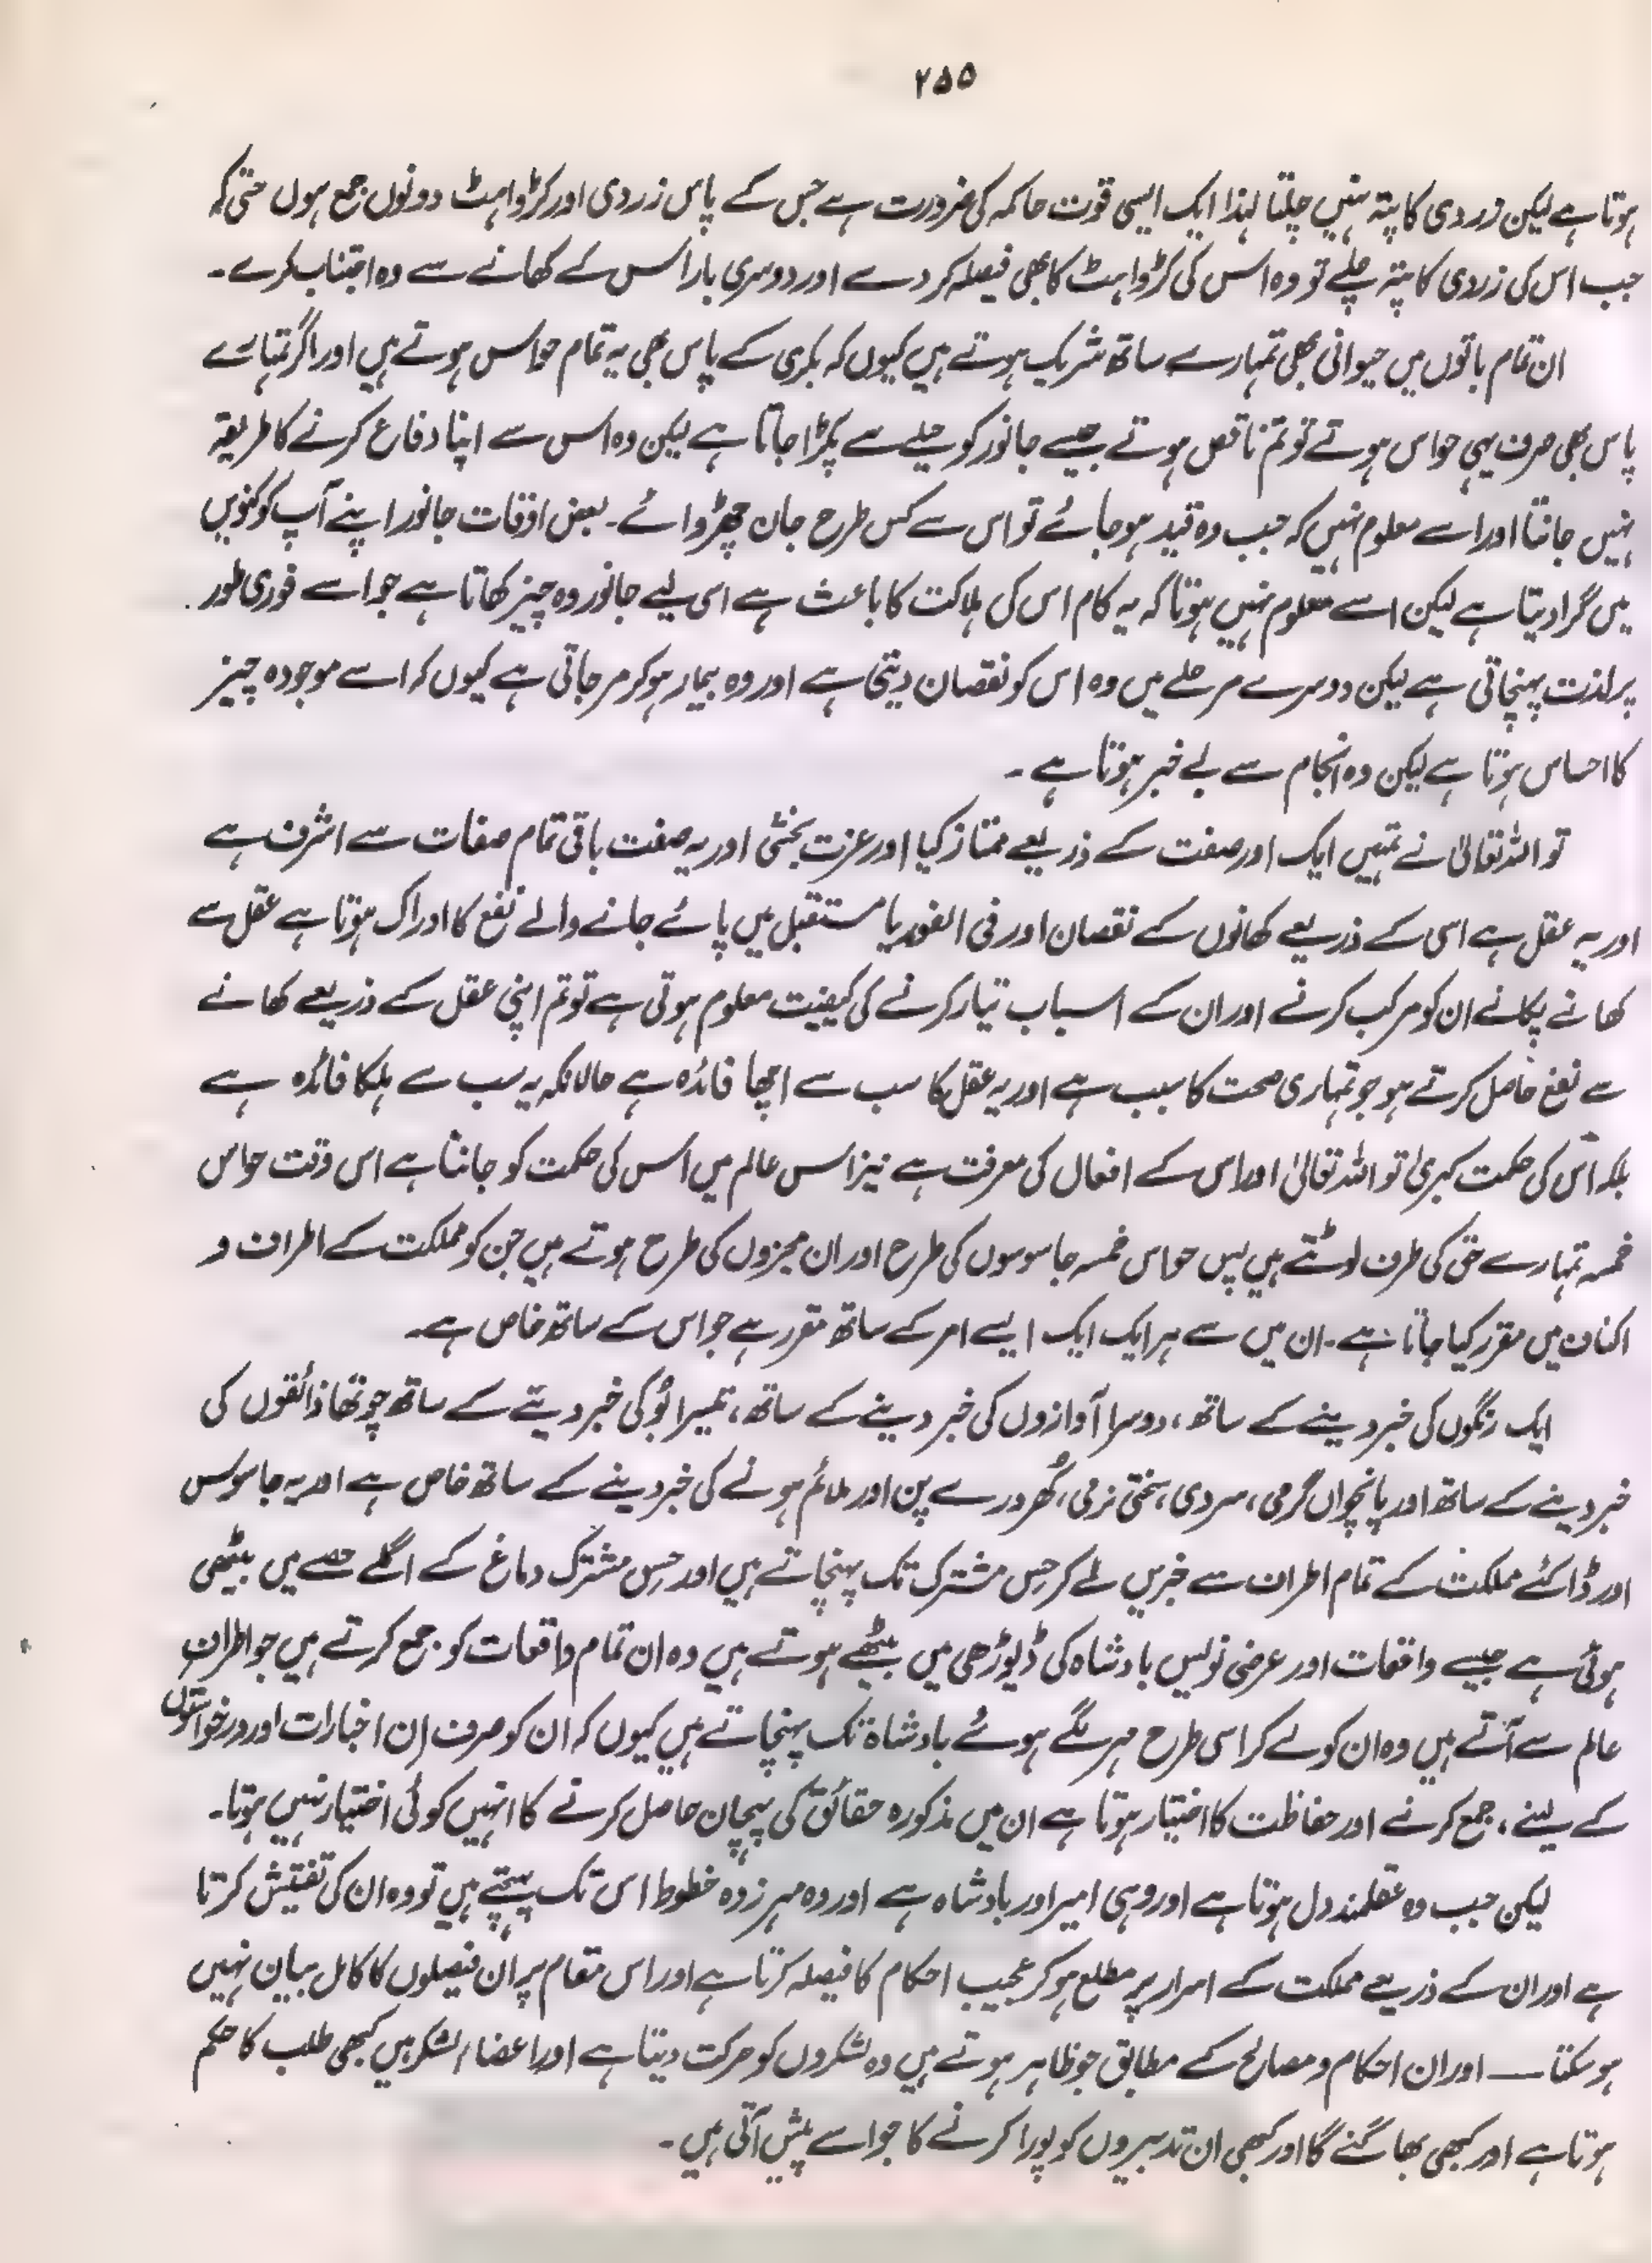 ۲۵۵
ہوتا ہے لیکن زردی کا پتہ نہیں چلتا لہذا ایک ایسی قوت حاکمہ کی ضرورت ہے جس کے پاس زردی اور کڑواہٹ دونوں جمع ہوں حتی کہ
جب اس کی زردی کا پتہ چلے تو وہ اس کی کڑواہٹ کا بھی فیصلہ کر دے اور دوسری بار اس کے کھانے سے وہ اجتناب کرے۔
ان تمام باتوں میں حیوانی بھی تمہارے ساتھ شریک ہوتے ہیں کیوں کہ بکری کے پاس بھی یہ تمام حواس ہوتے ہیں اور اگر تمہارے
پاس بھی صرف یہی حواس ہوتے تو تم ناقص ہوتے جیسے جانور کو حیلے سے پکڑا جاتا ہے لیکن وہ اس سے اپنا دفاع کرنے کا طریقہ
نہیں جانتا اور اسے معلوم نہیں کہ جب وہ قید ہو جائے تو اس سے کس طرح جان چھڑوائے۔ بعض اوقات جانور اپنے آپ کو کنویں
میں گرا دیتا ہے لیکن اسے معلوم نہیں ہوتا کہ یہ کام اس کی ہلاکت کا باعث ہے اسی لیے جانور وہ چیز کھاتا ہے جو اسے فوری طور
پر لذت پہنچاتی ہے لیکن دوسرے مرحلے میں وہ اس کو نقصان دیتی ہے اور وہ بیمار ہو کر مر جاتی ہے کیوں کہ اسے موجودہ چیز
کا احساس ہوتا ہے لیکن وہ انجام سے بے خبر ہوتا ہے۔
تو اللہ تعالیٰ نے تمہیں ایک اور صفت کے ذریعے ممتاز کیا اور عزت بخشی اور یہ صفت باقی تمام صفات سے اشرف ہے
اور یہ عقل ہے اسی کے ذریعے کھانوں کے نقصان اور فی الفور یا مستقبل میں پائے جانے والے نفع کا ادراک ہوتا ہے عقل سے
کھانے پکانے ان کو مرکب کرنے اور ان کے اسباب تیار کرنے کی کیفیت معلوم ہوتی ہے تو تم اپنی عقل کے ذریعے کھانے
سے نفع حاصل کرتے ہو جو تمہاری صحت کا سبب ہے اور یہ عقل کا سب سے اچھا فائدہ ہے حالانکہ یہ سب سے ہلکا فائدہ ہے
بلکہ اس کی حکمت کبریٰ تو اللہ تعالیٰ اور اس کے افعال کی معرفت ہے نیز اس عالم میں اس کی حکمت کو جاننا ہے اس وقت حواس
خمسہ تمہارے حق کی طرف لوٹتے ہیں پس حواس خمسہ جاسوسوں کی طرح اور ان مخبروں کی طرح ہوتے ہیں جن کو مملکت کے اطراف و
اکناف میں مقرر کیا جاتا ہے۔ ان میں سے ہر ایک ایک ایسے امر کے ساتھ مقرر ہے جو اس کے ساتھ خاص ہے۔
ایک رنگوں کی خبر دینے کے ساتھ، دوسرا آوازوں کی خبر دینے کے ساتھ، تیسرا بُو کی خبر دینے کے ساتھ چوتھا ذائقوں کی
خبر دینے کے ساتھ اور پانچواں گرمی، سردی، سختی نرمی، کُھردرے پن اور ملائم ہونے کی خبر دینے کے ساتھ خاص ہے اور یہ جاسوس
اور ڈاکئے مملکت کے تمام اطراف سے خبریں لے کر حِس مشترک تک پہنچاتے ہیں اور حِس مشترک دماغ کے اگلے حصے میں بیٹھی
ہوئی ہے جیسے واقعات اور عرضی نویس بادشاہ کی ڈیوڑھی میں بیٹھے ہوتے ہیں وہ ان تمام واقعات کو جمع کرتے ہیں جو اطراف
عالم سے آتے ہیں وہ ان کو لے کر اسی طرح مہر لگے ہوئے بادشاہ تک پہنچاتے ہیں کیوں کہ ان کو صرف اِن اخبارات اور درخواستوں
کے لینے، جمع کرنے اور حفاظت کا اختیار ہوتا ہے ان میں مذکورہ حقائق کی پہچان حاصل کرنے کا انہیں کوئی اختیار نہیں ہوتا۔
لیکن جب وہ عقلمند دل ہوتا ہے اور وہی امیر اور بادشاہ ہے اور وہ مہر زدہ خطوط اس تک پہنچتے ہیں تو وہ ان کی تفتیش کرتا
ہے اور ان کے ذریعے مملکت کے اسرار پر مطلع ہو کر عجیب احکام کا فیصلہ کرتا ہے اور اس مقام پر ان فیصلوں کا کامل بیان نہیں
ہو سکتا — اور ان احکام و مصالح کے مطابق جو ظاہر ہوتے ہیں وہ لشکروں کو حرکت دیتا ہے اور اعضاء لشکر ہیں کبھی طلب کا حکم
ہوتا ہے اور کبھی بھاگنے گا اور کبھی ان تدبیروں کو پورا کرنے کا جو اسے پیش آتی ہیں۔